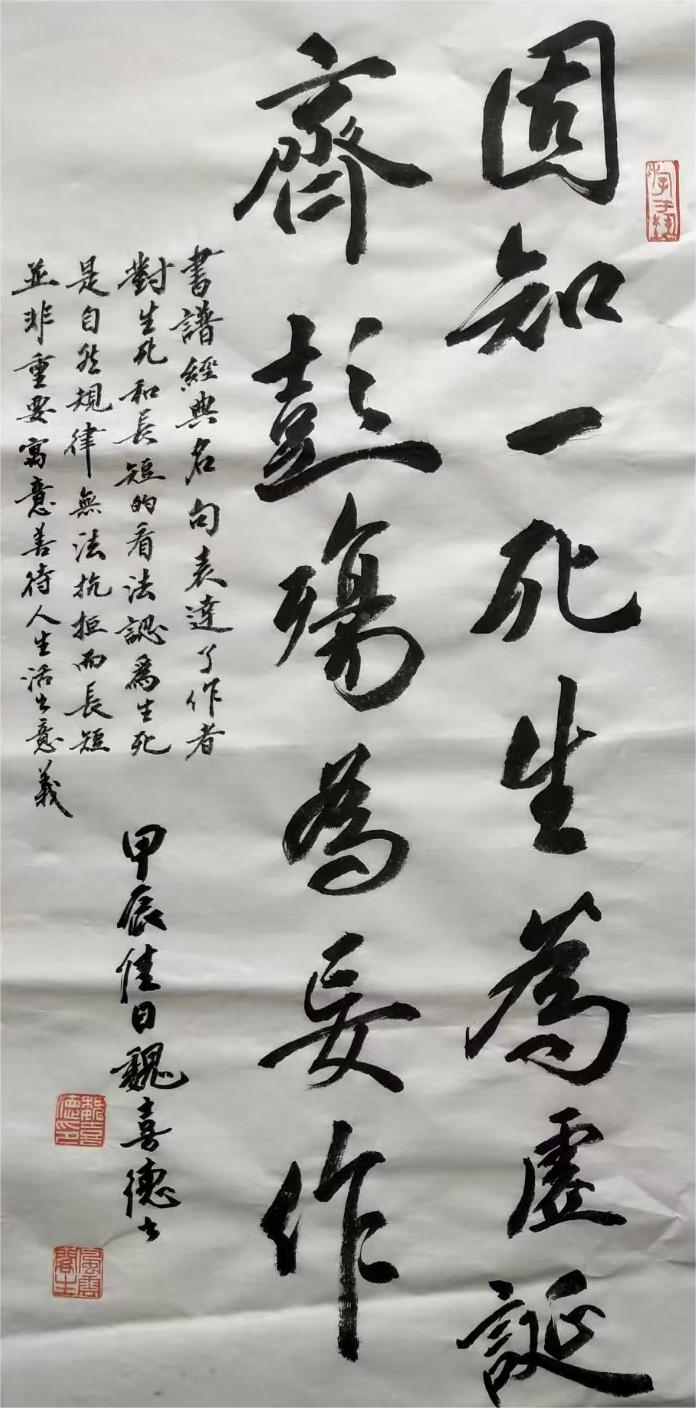 固知一死生為虛誕
齊彭殤為妄作
書譜經典名句表達了作者
對生死和長短的看法認為生死
是自然規律無法抗拒而長短
並非重要寓意善待人生活出意義
甲辰佳日魏喜德書
魏喜德印